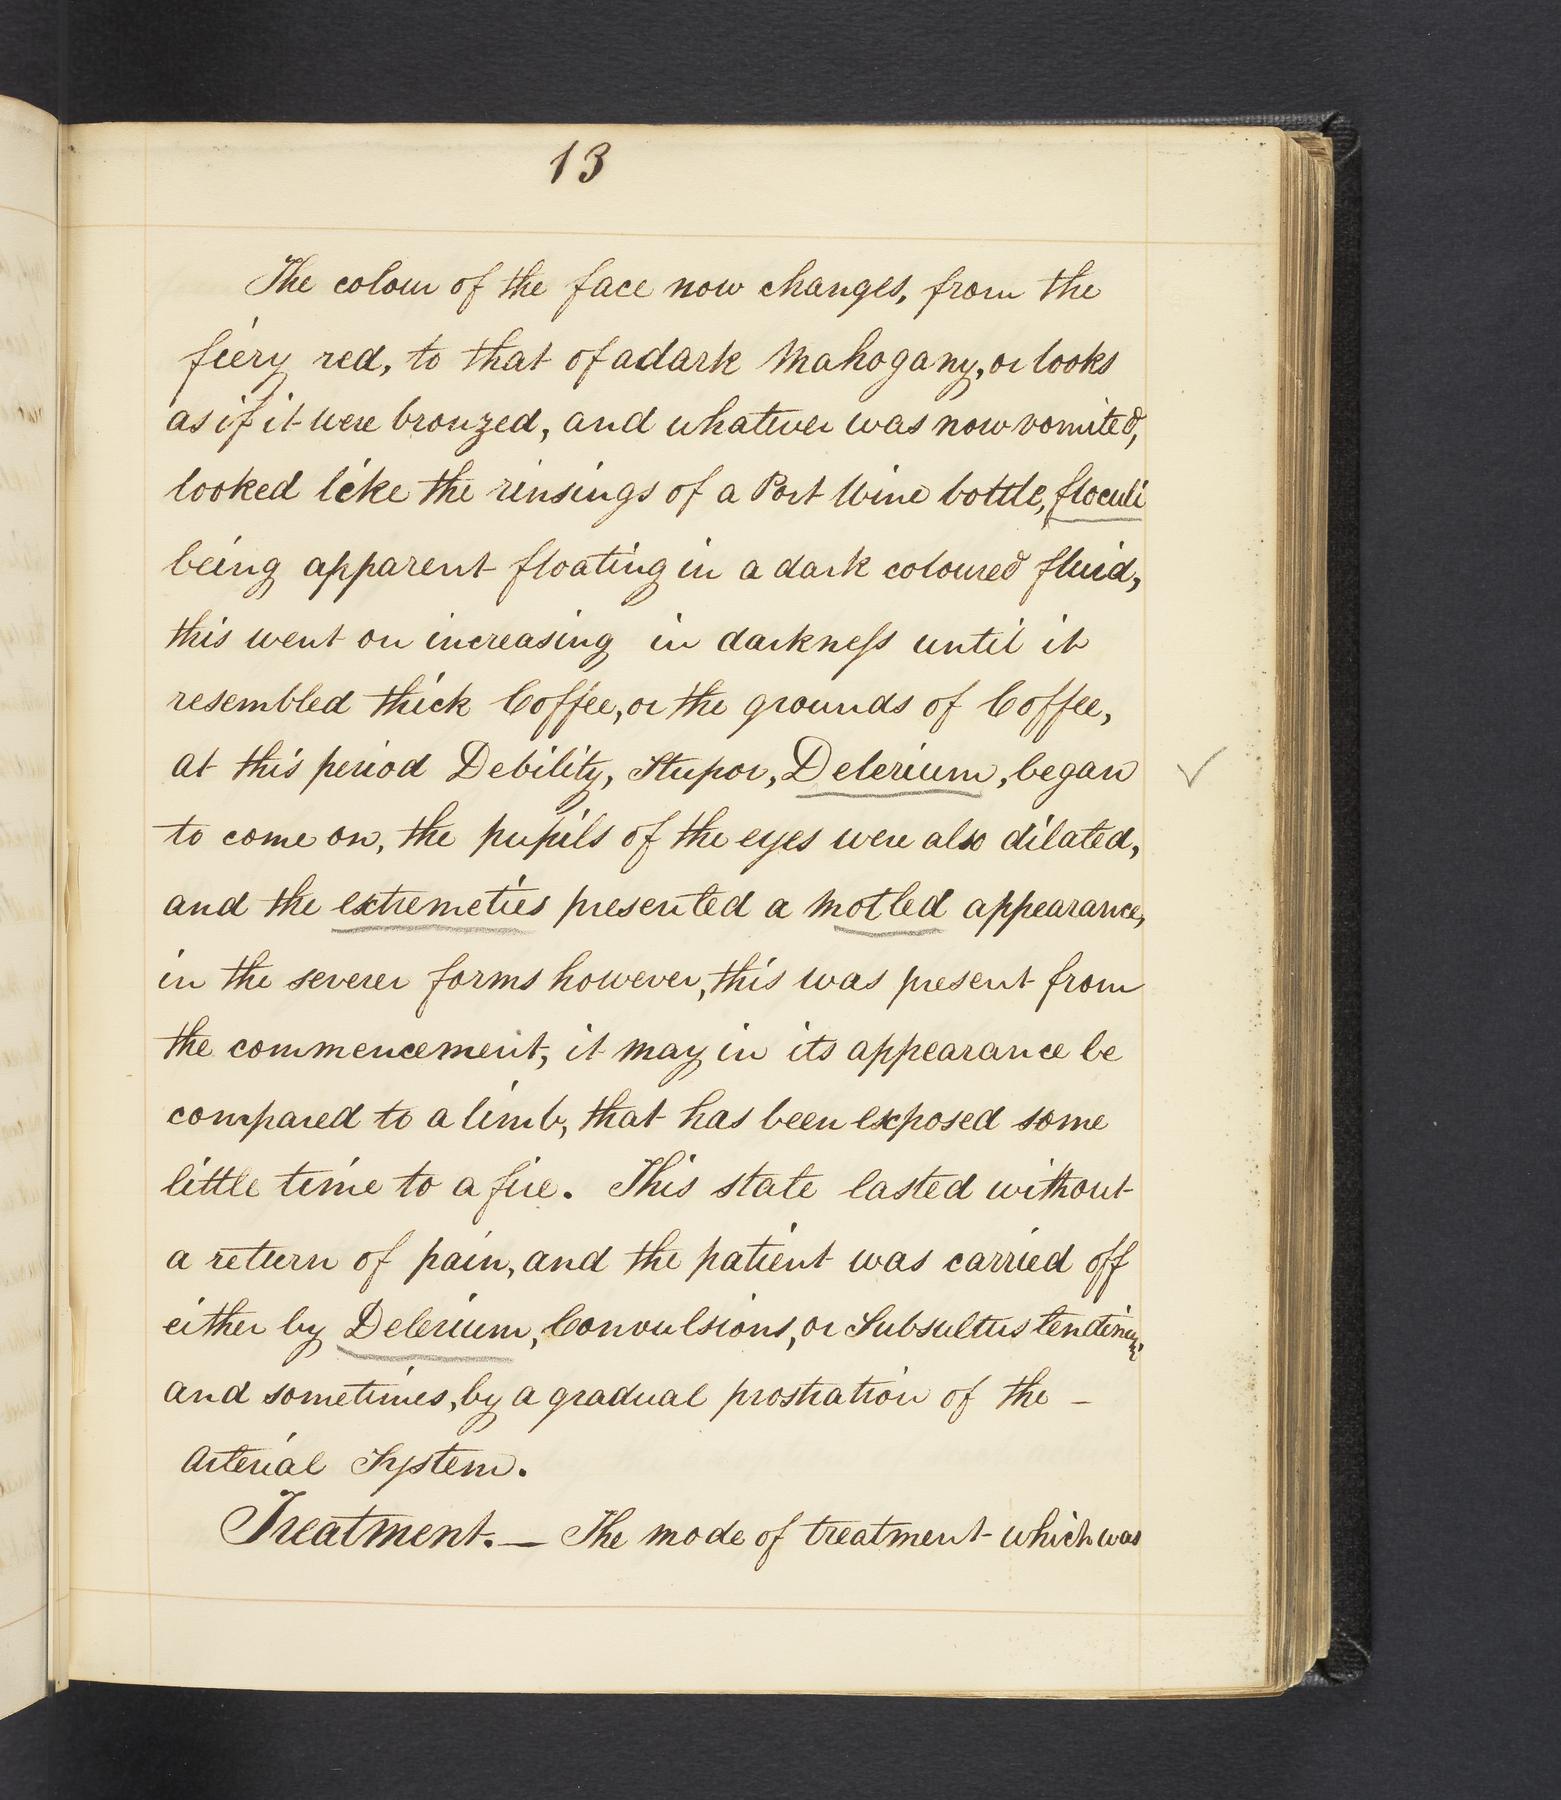 13
The colour of the face now changes, from the
fiery red, to that of a dark Mahogany, or looks
as if it were bronzed, and whatever was now vomited,
looked like the rinsings of a Port Wine bottle, floculi
being apparent floating in a dark coloured fluid,
this went on increasing in darkneſs until it
resembled thick Coffee, or the grounds of Coffee,
at this period Debility, Stupor, Delerium, began
to come on, the pupils of the eyes were also dilated,
and the extremeties presented a Motled appearance,
in the severer forms however, this was present from
the commencement, it may in its appearance be
compared to a limb, that has been exposed some
little time to a fire. This state lasted without
a return of pain, and the patient was carried off
either by Delerium, Convulsions, or Subsultus
and sometimes, by a gradual prostration of the –
Arterial System.
Treatment. — The mode of treatment which was